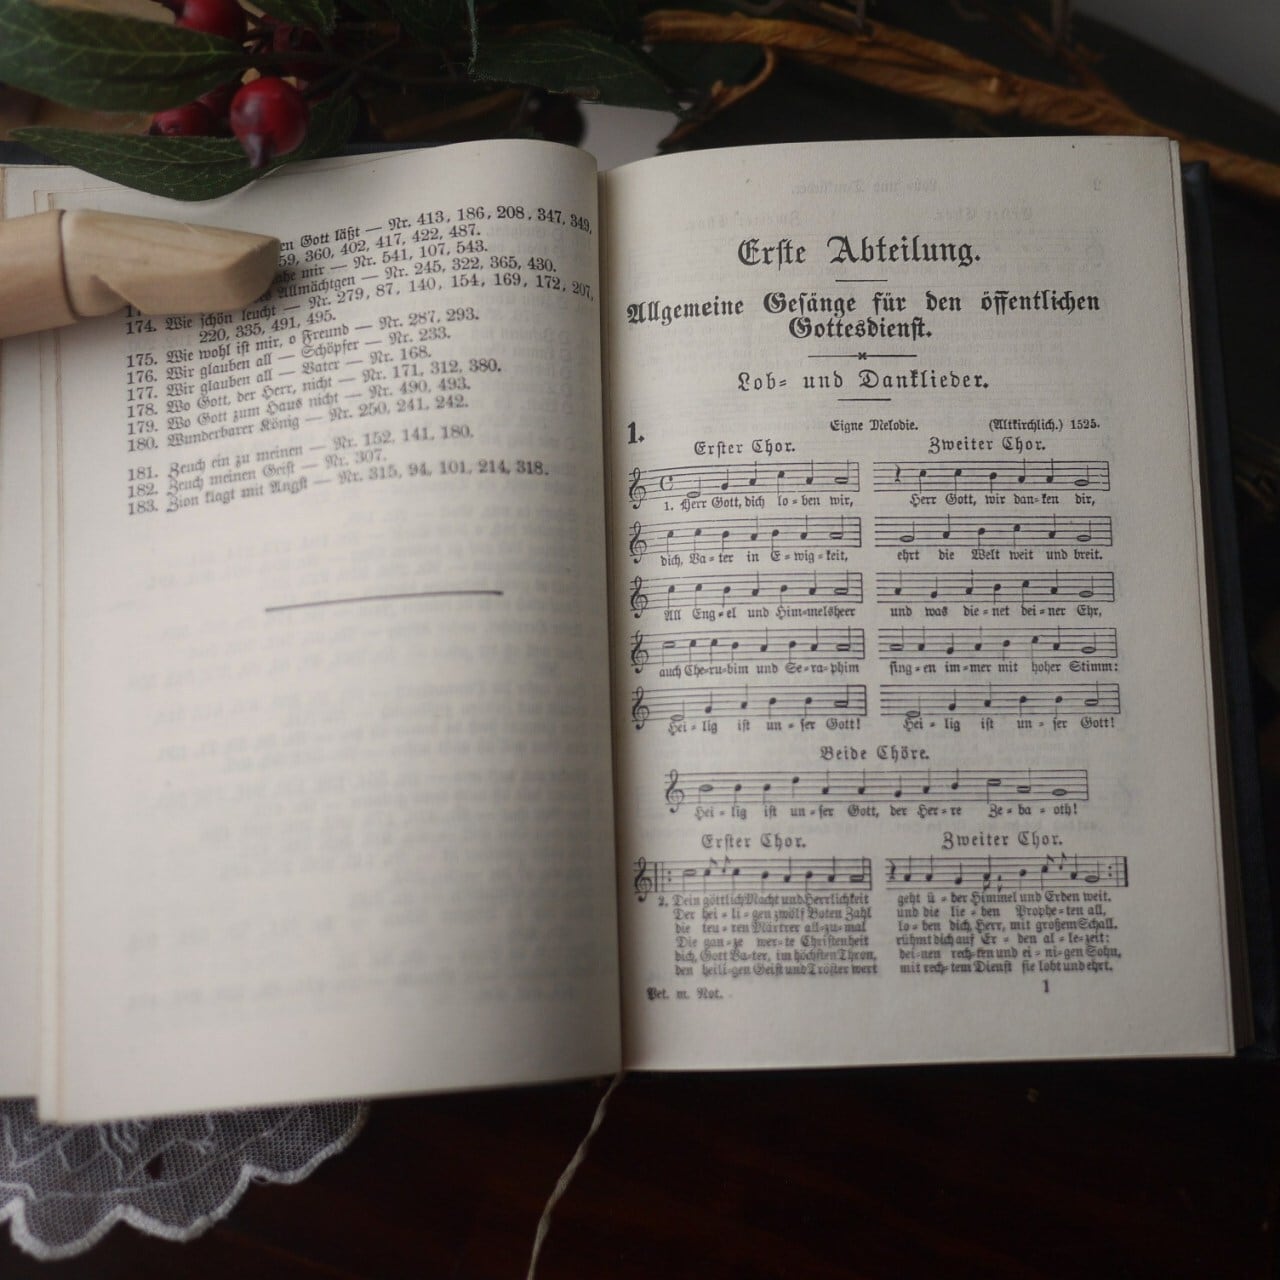 en Gott läßt — Nr. 413, 186, 208, 347, 349,
59, 360, 402, 417, 422, 487.
mir — Nr. 541, 107, 543.
Allmächtgen — Nr. 245, 322, 365, 430.
174. Wie schön leucht — Nr. 279, 87, 140, 154, 169, 172, 207,
220, 335, 491, 495.
175. Wie wohl ist mir, o Freund — Nr. 287, 293.
176. Wir glauben all — Schöpfer — Nr. 233.
177. Wir glauben all — Vater — Nr. 168.
178. Wo Gott, der Herr, nicht — Nr. 171, 312, 380.
179. Wo Gott zum Haus nicht — Nr. 490, 493.
180. Wunderbarer König — Nr. 250, 241, 242.
181. Zeuch ein zu meinen — Nr. 152, 141, 180.
182. Zeuch meinen Geist — Nr. 307.
183. Zion klagt mit Angst — Nr. 315, 94, 101, 214, 318.
Erste Abteilung.
Allgemeine Gesänge für den öffentlichen
Gottesdienst.
Lob- und Danklieder.
1. Eigne Melodie. (Altkirchlich.) 1525.
Erster Chor. Zweiter Chor.
1. Herr Gott, dich lo-ben wir, Herr Gott, wir dan-ken dir,
dich, Va-ter in E-wig-keit, ehrt die Welt weit und breit.
All Eng-el und Him-melsheer und was die-net dei-ner Ehr,
auch Che-ru-bim und Se-ra-phim sing-en im-mer mit hoher Stimm:
Hei-lig ist un-ser Gott! Hei-lig ist un-ser Gott!
Beide Chöre.
Hei-lig ist un-ser Gott, der Her-re Ze-ba-oth!
Erster Chor. Zweiter Chor.
2. Dein göttlich Macht und Herrlichkeit geht ü-ber Himmel und Erden weit.
Der hei-li-gen zwölf Boten Zahl und die lie-ben Prophe-ten all,
die teu-ren Märtrer all-zu-mal lo-ben dich, Herr, mit großem Schall.
Die gan-ze wer-te Christenheit rühmt dich auf Er-den al-le-zeit:
dich, Gott Va-ter, im höchsten Thron, dei-nen rech-ten und ei-ni-gen Sohn,
den heili-gen Geist und Tröster wert mit rech-tem Dienst sie lobt und ehrt.
Pet. m. Not. 1